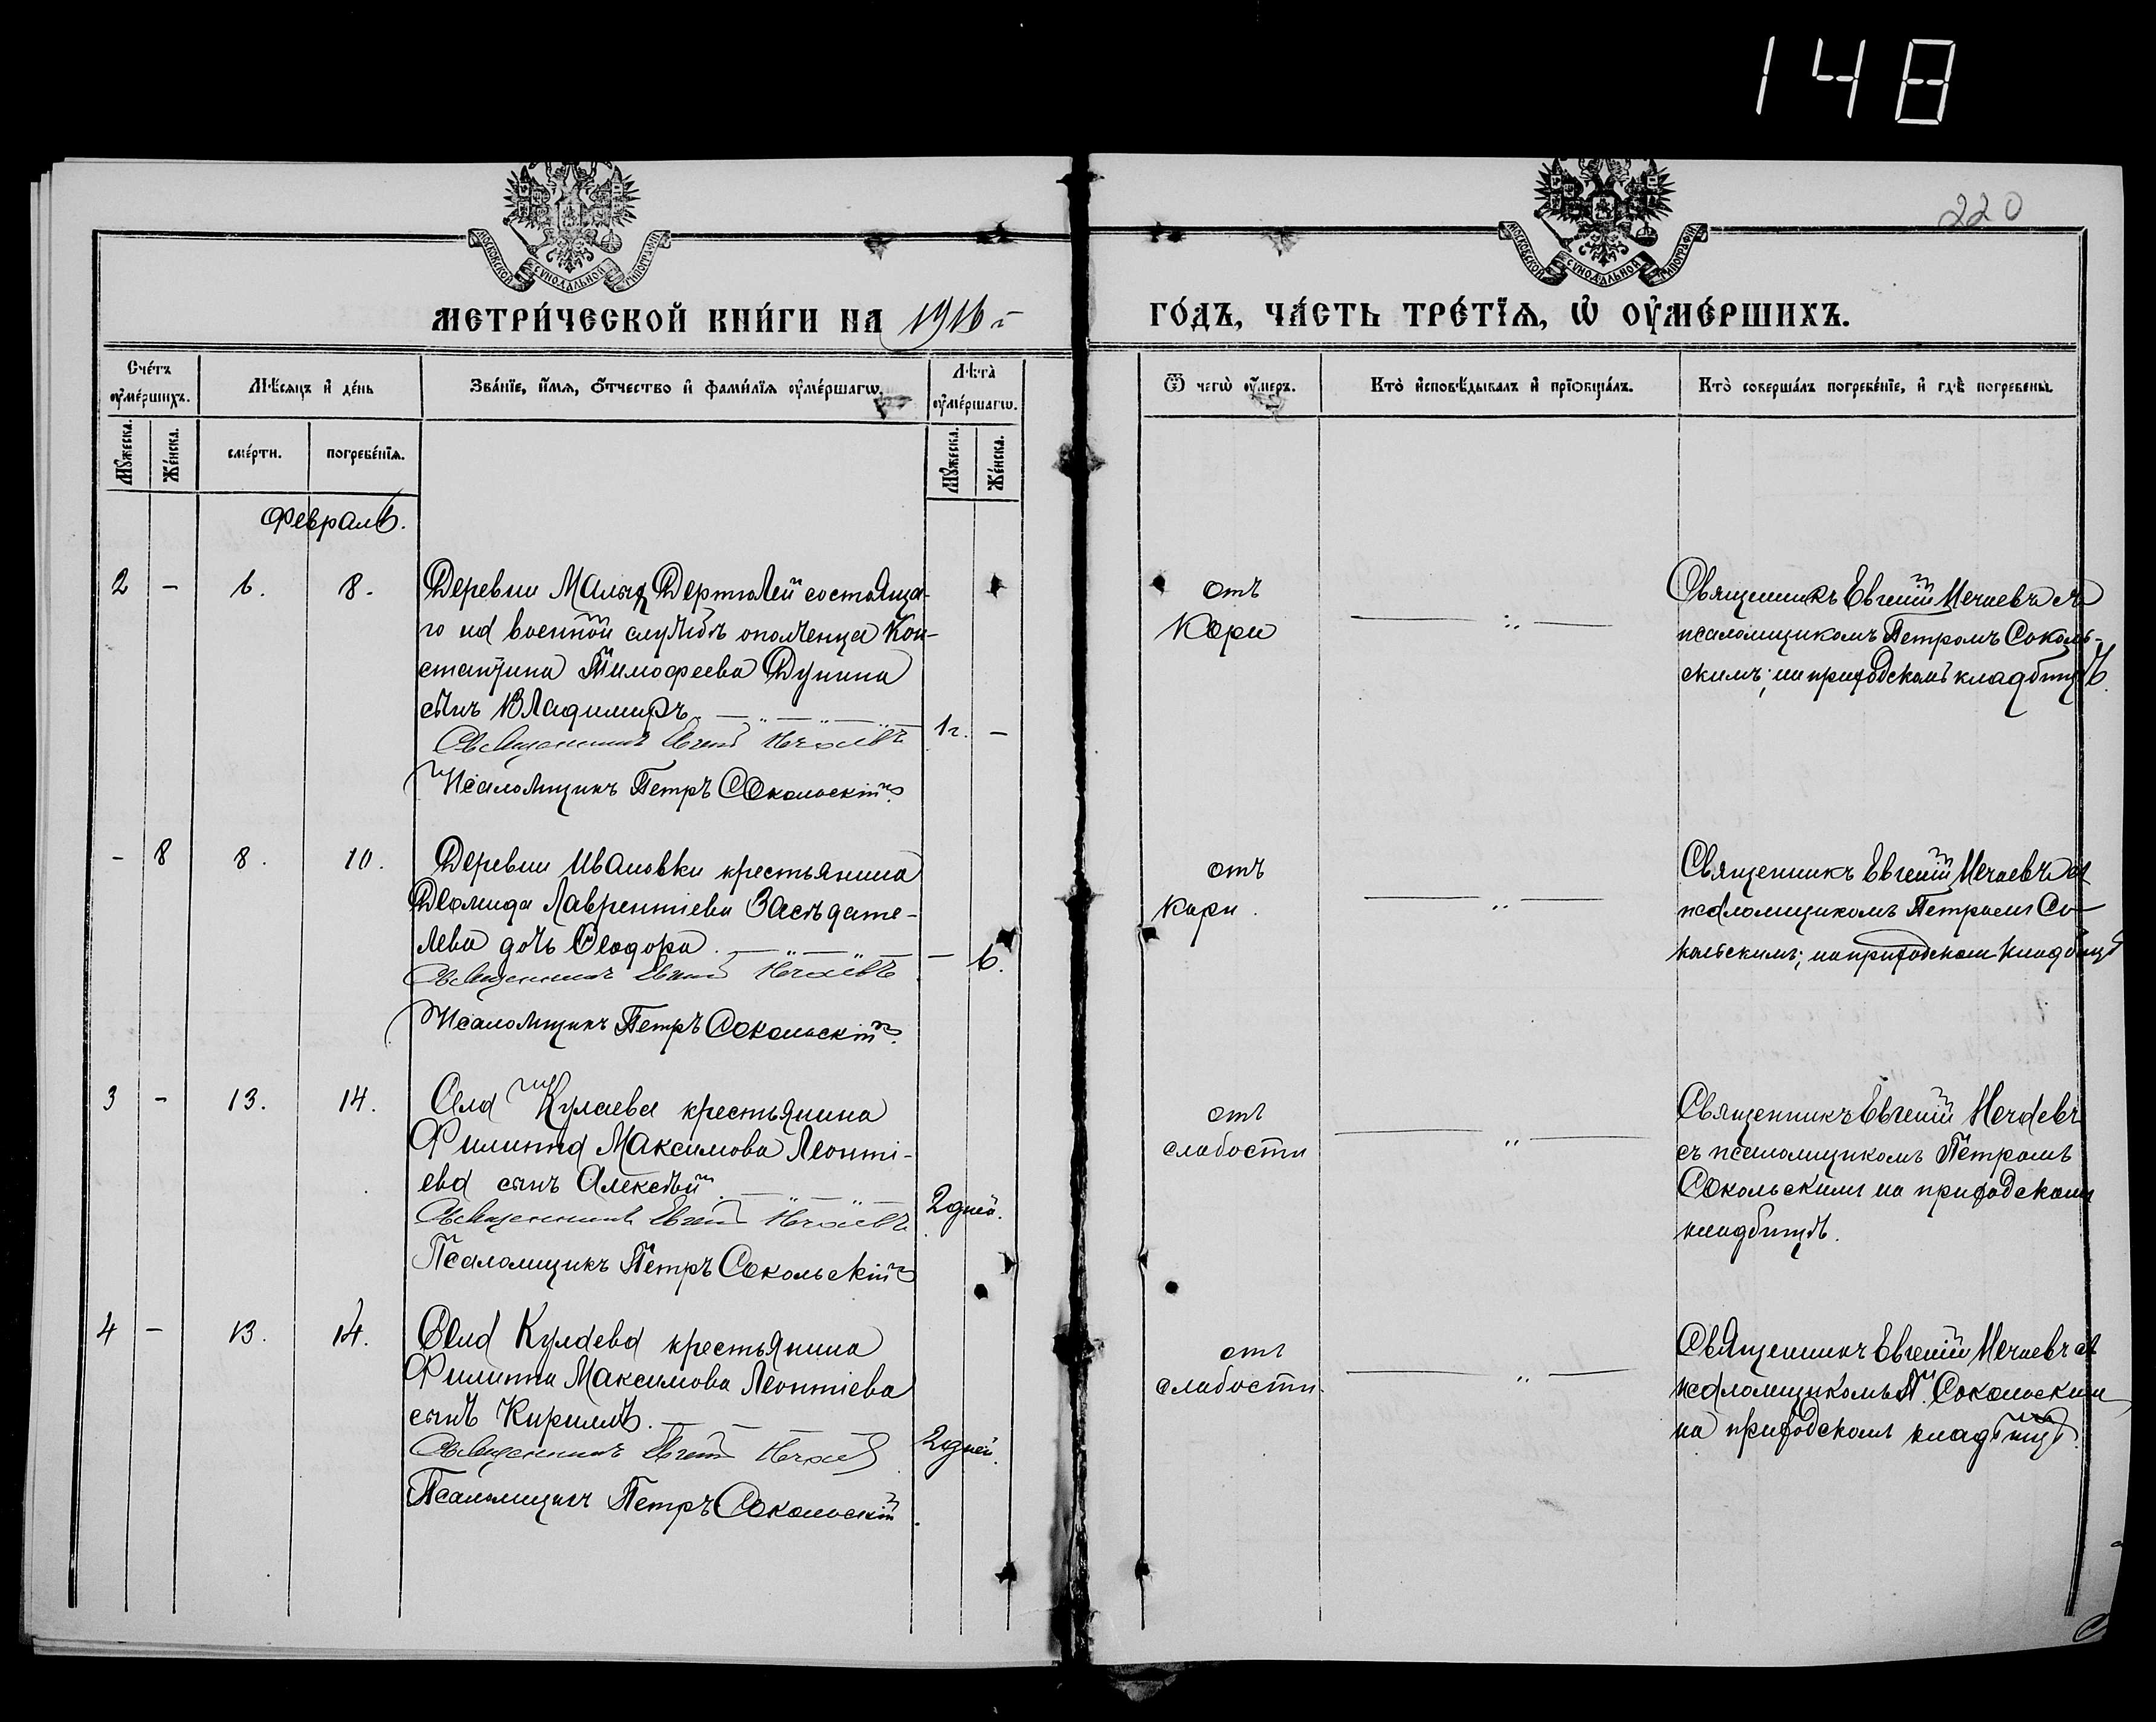 148
220
МОСКОВСКОЙ СѴНОДАЛЬНОЙ ТИПОГРАФІИ
МОСКОВСКОЙ СѴНОДАЛЬНОЙ ТИПОГРАФІИ
МЕТРИ́ЧЕСКОЙ КНИ́ГИ НА 1916 г
ГО́ДЪ, ЧА́СТЬ ТРЕ́ТІѦ, Ѡ ОУ҆МЕ́РШИХЪ.
Сче́тъ оу҆ме́ршихъ.
Мѣ́сѧцъ и҆ де́нь
Зва́нїе, и҆́мѧ, ѻ҆́тчество и҆ фами́лїѧ оу҆ме́ршагѡ.
Лѣ́та оу҆ме́ршагѡ.
Ѿ чегѡ̀ оу҆́меръ.
Кто̀ и҆сповѣ́дывалъ и҆ прїѡбща́лъ.
Кто̀ соверша́лъ погребе́нїе, и҆ гдѣ̀ погребены̀.
Мꙋ́жеска.
Же́нска.
сме́рти.
погребе́нїѧ.
Мꙋ́жеска.
Же́нска.
Февраль.
2 - 6. 8. Деревни Малыхъ Дертюлей состояща-
го на военной службѣ ополченца Кон-
стантина Тимофеева Дунина
сынъ Владимиръ. 1 г. -
Священникъ Евгеній Нечаевъ
Псаломщикъ Петръ Сокольскій.
отъ
Кори
Священникъ Евгеній Нечаевъ съ
псаломщикомъ Петромъ Соколь-
скимъ; на приходскомъ кладбищѣ.
- 8 8. 10. Деревни Ивановки крестьянина
Деомида Лаврентіева Засѣдате-
лева дочь Ѳеодора. - 6.
Священникъ Евгеній Нечаевъ
Псаломщикъ Петръ Сокольскій.
отъ
Кори.
Священникъ Евгеній Нечаевъ съ
псаломщикомъ Петромъ Со-
кольскимъ; на приходскомъ кладбищѣ
3 - 13. 14. Села Кулаева крестьянина
Филиппа Максимова Леонті-
ева сынъ Алексѣй. 2 дней.
Священникъ Евгеній Нечаевъ
Псаломщикъ Петръ Сокольскій
отъ
слабости
Священникъ Евгеній Нечаевъ
съ псаломщикомъ Петромъ
Сокольскимъ на приходскомъ
кладбищѣ.
4 - 13. 14. Села Кулаева крестьянина
Филиппа Максимова Леонтіева
сынъ Кириллъ. 2 дней.
Священникъ Евгеній Нечаевъ
Псаломщикъ Петръ Сокольскій.
отъ
слабости.
Священникъ Евгеній Нечаевъ съ
псаломщикомъ П. Сокольскимъ
на приходскомъ кладбищѣ.